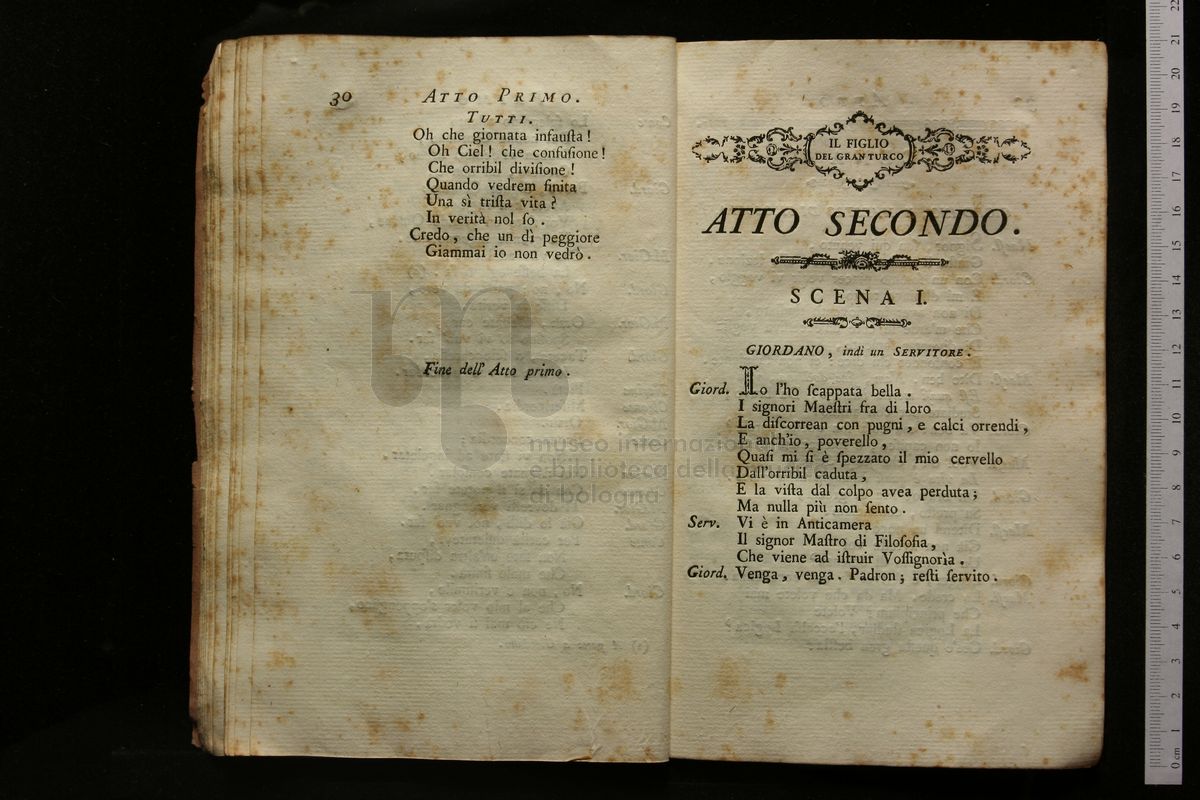 30
ATTO PRIMO.
TUTTI.
Oh che giornata infauſta!
Oh Ciel! che confuſione!
Che orribil diviſione!
Quando vedrem finita
Una sì triſta vita?
In verità nol ſo.
Credo, che un dì peggiore
Giammai io non vedrò.
Fine dell' Atto primo.
IL FIGLIO
DEL GRAN TURCO
ATTO SECONDO.
SCENA I.
GIORDANO, indi un SERVITORE.
Giord. Io l'ho ſcappata bella.
I signori Maeſtri fra di loro
La diſcorrean con pugni, e calci orrendi,
E anch'io, poverello,
Quaſi mi ſi è ſpezzato il mio cervello
Dall'orribil caduta,
E la viſta dal colpo avea perduta;
Ma nulla più non ſento.
Serv. Vi è in Anticamera
Il signor Maſtro di Filoſofia,
Che viene ad iſtruir Voſſignorìa.
Giord. Venga, venga. Padron; reſti ſervito.
museo internazio
e biblioteca della
di bologna
0 cm 1 2 3 4 5 6 7 8 9 10 11 12 13 14 15 16 17 18 19 20 21 22